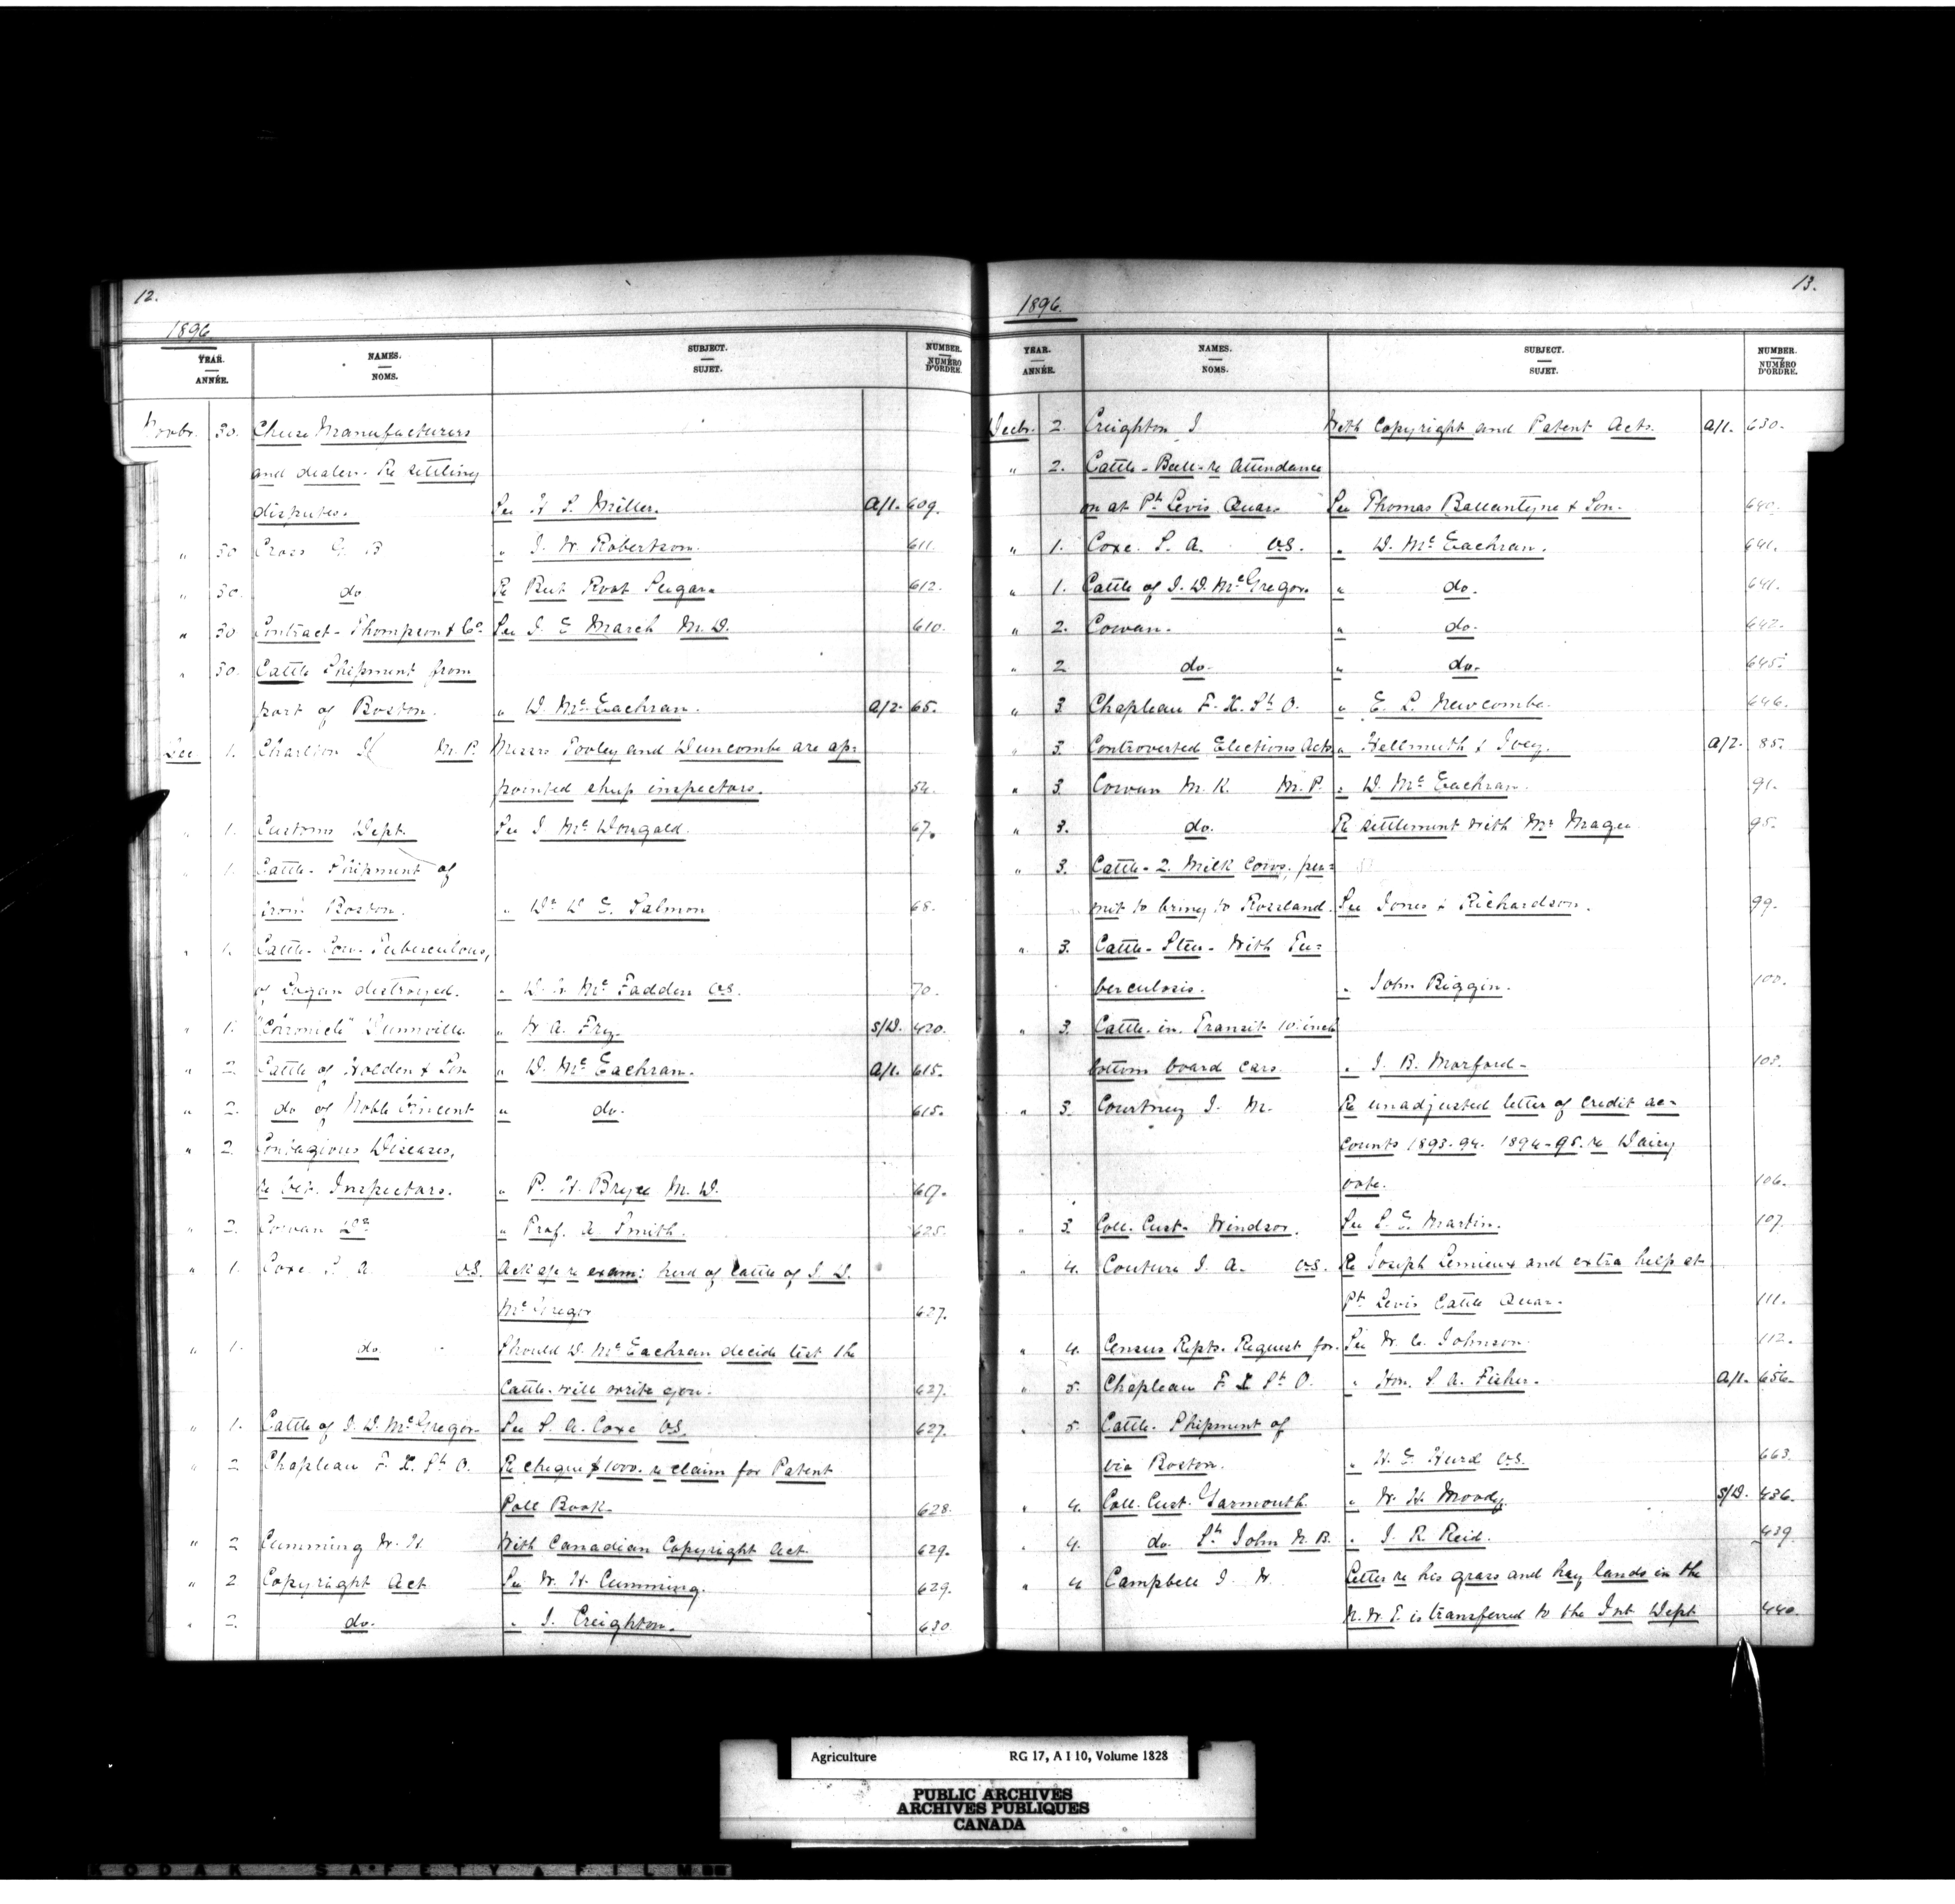 12.
1896
YEAR. NAMES. SUBJECT. NUMBER.
ANNÉE. NOMS. SUJET. NUMÉRO D'ORDRE.
Novbr. 30. Cheese Manufacturers
and dealers. Re settling
disputes. See H S. Miller. A/1. 609.
" 30 Cross G. B " J. W. Robertson. 611.
" 30. do Re Beet Root Sugar. 612.
" 30 Contract - Thompson & Co. See J. E March M.D. 610.
" 30. Cattle Shipment from
port of Boston. " D. McEachran. A/2. 65.
Dec 1. Charlton J M.P. Messrs Pooley and Duncombe are ap-
pointed sheep inspectors. 54.
" 1. Customs Dept. See J McDougald. 67.
" 1. Cattle - Shipment of
from Boston. " Dr D E. Salmon 68.
" 1. Cattle - Cow - Tuberculous,
of Logan destroyed. " D. McFadden VS. 70.
" 1. "Chronicle" Dunnville " W. A. Fry. S/D. 420.
" 2. Cattle of Holden & Son " D. McEachran. A/1. 615.
" 2. do of Noble Vincent " do. 615.
" 2. Contagious Diseases,
re Vet. Inspectors. " P. H. Bryce M.D. 617.
" 2. Cowan Dr " Prof. A Smith. 625.
" 1. Coxe S. A. VS. Ask a/c re exam: herd of Cattle of J. D.
McGregor 627.
" 1. do. Should D. McEachran decide test the
Cattle. will write you. 627.
" 1. Cattle of J. D. McGregor. See S. A. Coxe VS. 627.
" 2 Chapleau F. X. St O. Re cheque $1000. re claim for Patent
Poll Book. 628.
" 2 Cumming W. H. With Canadian Copyright Act. 629.
" 2 Copyright Act See W. H. Cumming. 629.
" 2. do. " J. Creighton. 630.
13.
1896.
YEAR. NAMES. SUBJECT. NUMBER.
ANNÉE. NOMS. SUJET. NUMÉRO D'ORDRE.
Decbr. 2. Creighton J With Copyright and Patent Acts. A/1. 630.
" 2. Cattle - Bull - re Attendance
on at Pt Levis Quar. See Thomas Ballantyne & Son. 640.
" 1. Coxe. S. A. VS. " D. McEachran. 641.
" 1. Cattle of J. D. McGregor. " do. 641.
" 2. Cowan. " do. 642.
" 2 do. " do. 645.
" 3. Chapleau F. X. St O. " E. L. Newcombe. 646.
" 3. Controverted Elections Acts " Hellmuth & Ivey. A/2. 85.
" 3. Cowan M. K. M.P. " D. McEachran. 91.
" 3. do. Re settlement with Mr Magee 95.
" 3. Cattle - 2. Milk Cows. per-
mit to bring to Rossland. See Jones & Richardson. 99.
" 3. Cattle - Steer - With Tu-
berculosis. " John Riggin. 100.
" 3. Cattle in Transit 10 inch
bottom board cars. " J. B. Morford. 103.
" 3. Courtney J. M. Re unadjusted letter of credit ac-
counts 1893-94. 1894-95. re Dairy
vote. 106.
" 3 Coll. Cust. Windsor. See S. E. Martin. 107.
" 4. Couture J. A. VS. Re Joseph Lemieux and extra help at
Pt Levis Cattle Quar. 111.
" 4. Census Repts. Request for. See W. C. Johnson. 112.
" 5. Chapleau F. X St O. " Hon. S. A. Fisher. A/1. 656.
" 5 Cattle. Shipment of
via Boston. " H. E Hurd VS. 663.
" 4. Coll. Cust. Yarmouth. " W. H. Moody. S/D. 436.
" 4. do. St John N.B. " J. R. Reid. 439.
" 4 Campbell J. W. Letter re his grass and hay lands in the
N.W.T. is transferred to the Int Dept 440.
Agriculture RG 17, A I 10, Volume 1828
PUBLIC ARCHIVES
ARCHIVES PUBLIQUES
CANADA
KODAK SAFETY FILM